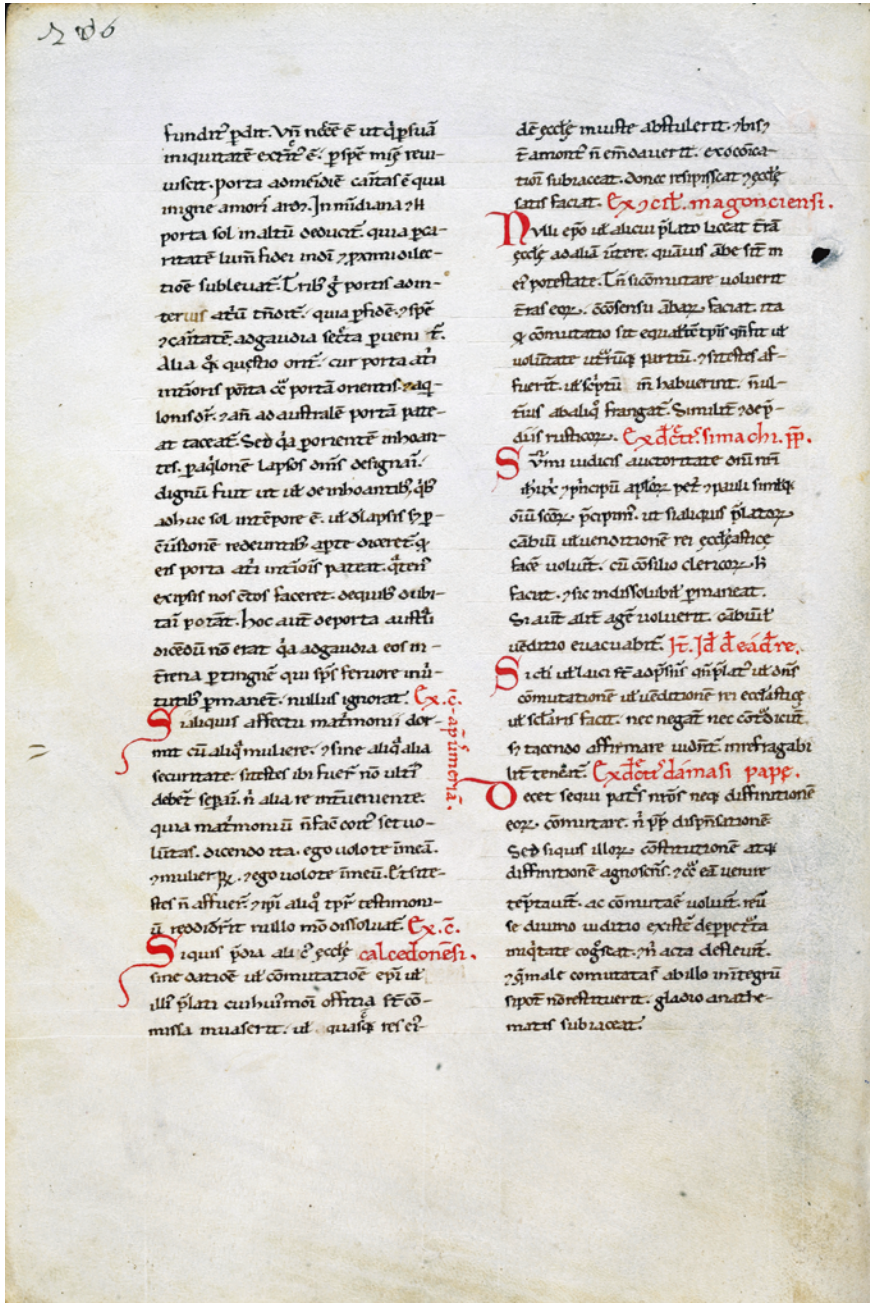 206
fundit᷒ p̱dit. Vn̄ nēcē ē ut q̇ p̱ suā
iniquitatē exti̇t᷒ ē. p̱ spē miſ̄ę revi-
viscit. porta ad meridiē caritas ē quia
in igne amoris ardȝ. In meridiana ⁊ .n.
porta sol in altū deducit᷒. quia p̱ ca-
ritatē lum̄ fidei in dei ⁊ p̱ximi dilec-
tione sublevat᷒. Trib᷒ ġ portis ad in-
teriꝰ atriū tn̄dit᷒. quia p̱ fidē. ⁊ spē
⁊ caritatē. ad gaudia secreta p̱venit᷒.
Alia q̊ꝫ questio orit᷒. cur porta atrii
int̄ioris ꝯt̄ portā orientis. ⁊ aq̇-
lonis dr̄. ⁊ an̄ ad australē portā pate-
at taceat᷒. Sed q̇a p̱ orientē inhoan-
tes. p̱ aq̇lonē lapsos dn̄s designat.
dignū fuit ut ul̄ de inhoantib᷒, q̇b᷒
adhuc sol in tēpore ē. ul̄ d̄ lapsis s̄ꝫ p̱
ꝯv̄sionē redeuntib᷒ ap̱te diceret᷒ q̇
eis porta atrii int̄ioris pateat.
ex ipsis nos c̄tos faceret. de quib᷒ dubi-
tari poterat. hoc aut̄ de porta austri
dicēdū nō erat q̇a ad gaudia eos in-
t̄na p̱tingere qui sp̄s fervore in vir-
tutib᷒ p̱manet᷒. nullus ignorat. Ex. c̄.
ap̄ umeriā.
Si aliquis affectu mat̄monii dor-
mit cū aliq̇ muliere. ⁊ sine aliq̇ alia
securitate. si testes ibi fuer̄ nō ulti᷒
debēt separi. n̄ alia re int̄veniente.
quia mat̄moniū n̄ fac̄ coit᷒ set vo-
lūtas. dicendo ita. ego volo te in meā.
⁊ mulier  ⁊ ego volo te in meū. Et si te-
stes n̄ affuer̄. ⁊ ipi aliq̊ tp̄r testimoni-
ū reddiderit nullo mō dissolvat᷒. Ex. c̄.
calcedonēsi.
Siquis p̄dia alic᷒ ęccłę
sine datiōe ul̄ cōmutatiōe ep̄i ul̄
illi᷒ p̄lati cui huiꝰmōi offitia st̄ cō-
missa invaserit. ul̄ quasq; res ei᷒-
dē ęccłę iniuste abstulerit. ⁊ bis ⁊
t̄ amonit᷒ n̄ em̄daverit. excōica-
tiōi subiaceat. donec resipiscat ⁊ ęccłę
satis faciat. Ex ꝯcil̄. magonciensi.
Nulli ep̄o ul̄ alicui p̄lato liceat t̄rā
ęccłę ad aliā ūtere. quāvis ābe sit in
ei᷒ potestate. Tn̄ si cōmutare voluerit
t̄ras eoꝝ. cōsensu ābaꝝ faciat. ita
q̇ cōmutatio sit equalit᷒ qn̄ fit ul̄
volūtate utri᷒q; partiū. ⁊ si testes af-
fuerit. ul̄ scriptū in̄ habuerint. n̄ ul-
t̄ius ab aliq̊ frangat᷒. Similit᷒ ⁊ de p̄-
diis rusticoꝝ. Ex dc̄ret᷒. simachi. pp̄.
Sūmi iudicis auctoritate dn̄i nr̄i
ih̄u xp̄i ⁊ p̄ncipū ap̄loꝝ pet̄ ⁊ pauli simłq;
oīu scōꝝ p̄cipim᷒. ut si aliquis p̄latoꝝ
cābiū ul̄ venditionē rei ecclesiastice
facē voluit᷒. cū cōsilio clericoꝝ h̄
faciat. ⁊ sic indissolubil᷒ p̱maneat.
Si aut̄ alit̄ agē voluerit. cābiū ul̄
vēditio evacuabit᷒. It̄. Id̄ d̄ eād̄ re.
Si cl̄ci ul̄ laici st̄ ad p̄sn̄s qn̄ p̄lat᷒ ul̄ dn̄s
cōmutationē ul̄ vēditionē rei ecclesiasticę
ul̄ sclaris facit. nec negat nec cōt̄dicūt
s̄ꝫ tacendo affirmare vidn̄t᷒. irrefragabi
lit᷒ tenēt᷒. Ex dc̄ret᷒ damasi papę.
Decet sequi pat̄s nr̄os neq; diffinitionē
eoꝝ cōmutare. n̄ pp̄ dispn̄sationē.
Sed siquis illoꝝ cōstitutionē atq;
diffinitionē agnoscn̄s. ⁊ cc̄ eā venire
tēptavit᷒. ac cōmutare voluit᷒. reū
se divino iuditio existē de p̱petrata
iniq̇tate cogn̄scat. ⁊ n̄ acta defleverit.
⁊ q̇ male comutatas᷒ ab illo in īntegrū
si pot̄ nō restituerit. gladio anathe-
matis subiaceat.